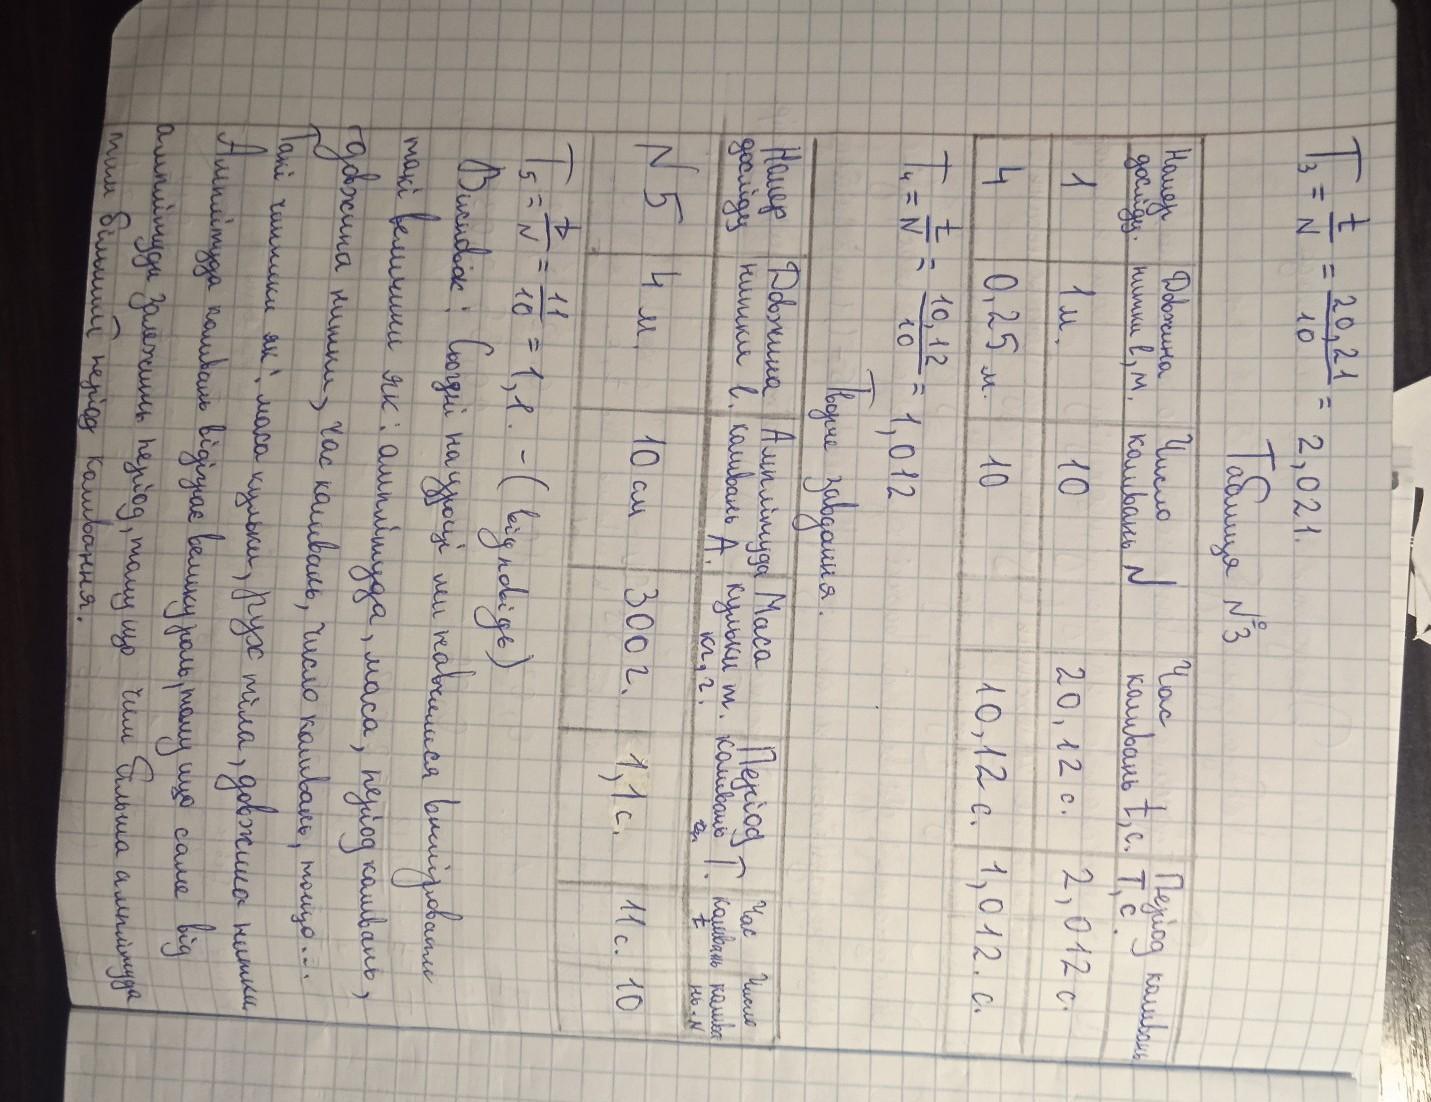 T₃ = t/N = 20,21/10 = 2,021.
Таблиця №3
Номер досліду. Довжина нитки l, м. Число коливань N Час коливань t, с. Період коливань T, с.
1 1м. 10 20,12 с. 2,012 с.
4 0,25 м. 10 10,12 с. 1,012. с.
T₄ = t/N = 10,12/10 = 1,012
Творче завдання.
Номер досліду Довжина нитки l. Амплітуда коливань А. Маса кульки m. кг, г. Період коливань T. Час коливань t Число коливань N
N 5 4 м. 10 см 300 г. 1,1 с. 11 с. 10
T₅ = t/N = 11/10 = 1,1. - (відповідь)
Висновок: Сьогдні на уроці ми навчилися вимірювати
такі величини як: амплітуда, маса, період коливань,
довжина нитки, час коливань, число коливань, тощо...
Такі чинники як: маса кульки, рух тіла, довжина нитки
Амплітуда коливань відіграє велику роль, тому що саме від
амплітуди залежить період, тому що чим більша амплітуда
тим більший період коливання.